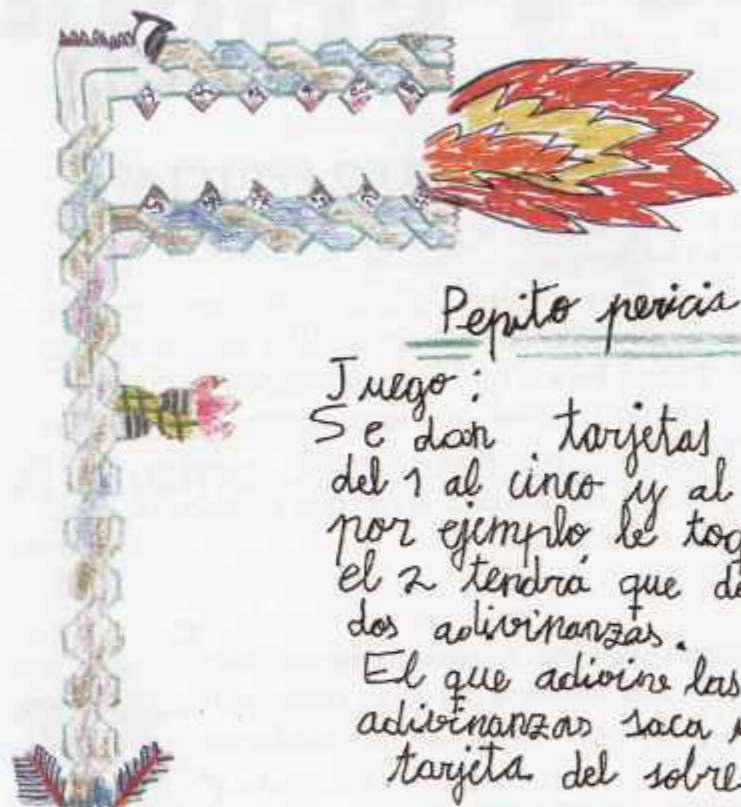 Pepito pericia
Juego:
Se dan tarjetas
del 1 al cinco y al
por ejemplo le
el 2 tendrá que
dos adivinanzas.
El que adivine las
adivinanzas saca
tarjeta del sobre